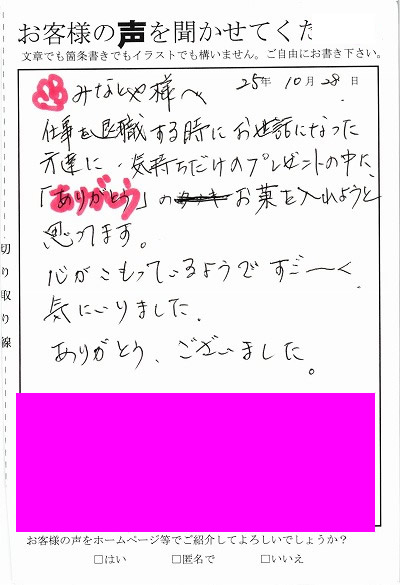 お客様の声を聞かせてくだ
文章でも箇条書きでもイラストでも構いません。ご自由にお書き下さい。
25年 10月 28日
みなとや様へ
仕事を退職する時にお世話になった
方達に、気持ちだけのプレゼントの中に、
「ありがとう」の お菓を入れようと
思ってます。
心がこもっているようで すご〜く
気にいりました。
ありがとう、ございました。
切り取り線
お客様の声をホームページ等でご紹介してよろしいでしょうか?
□はい □匿名で □いいえ